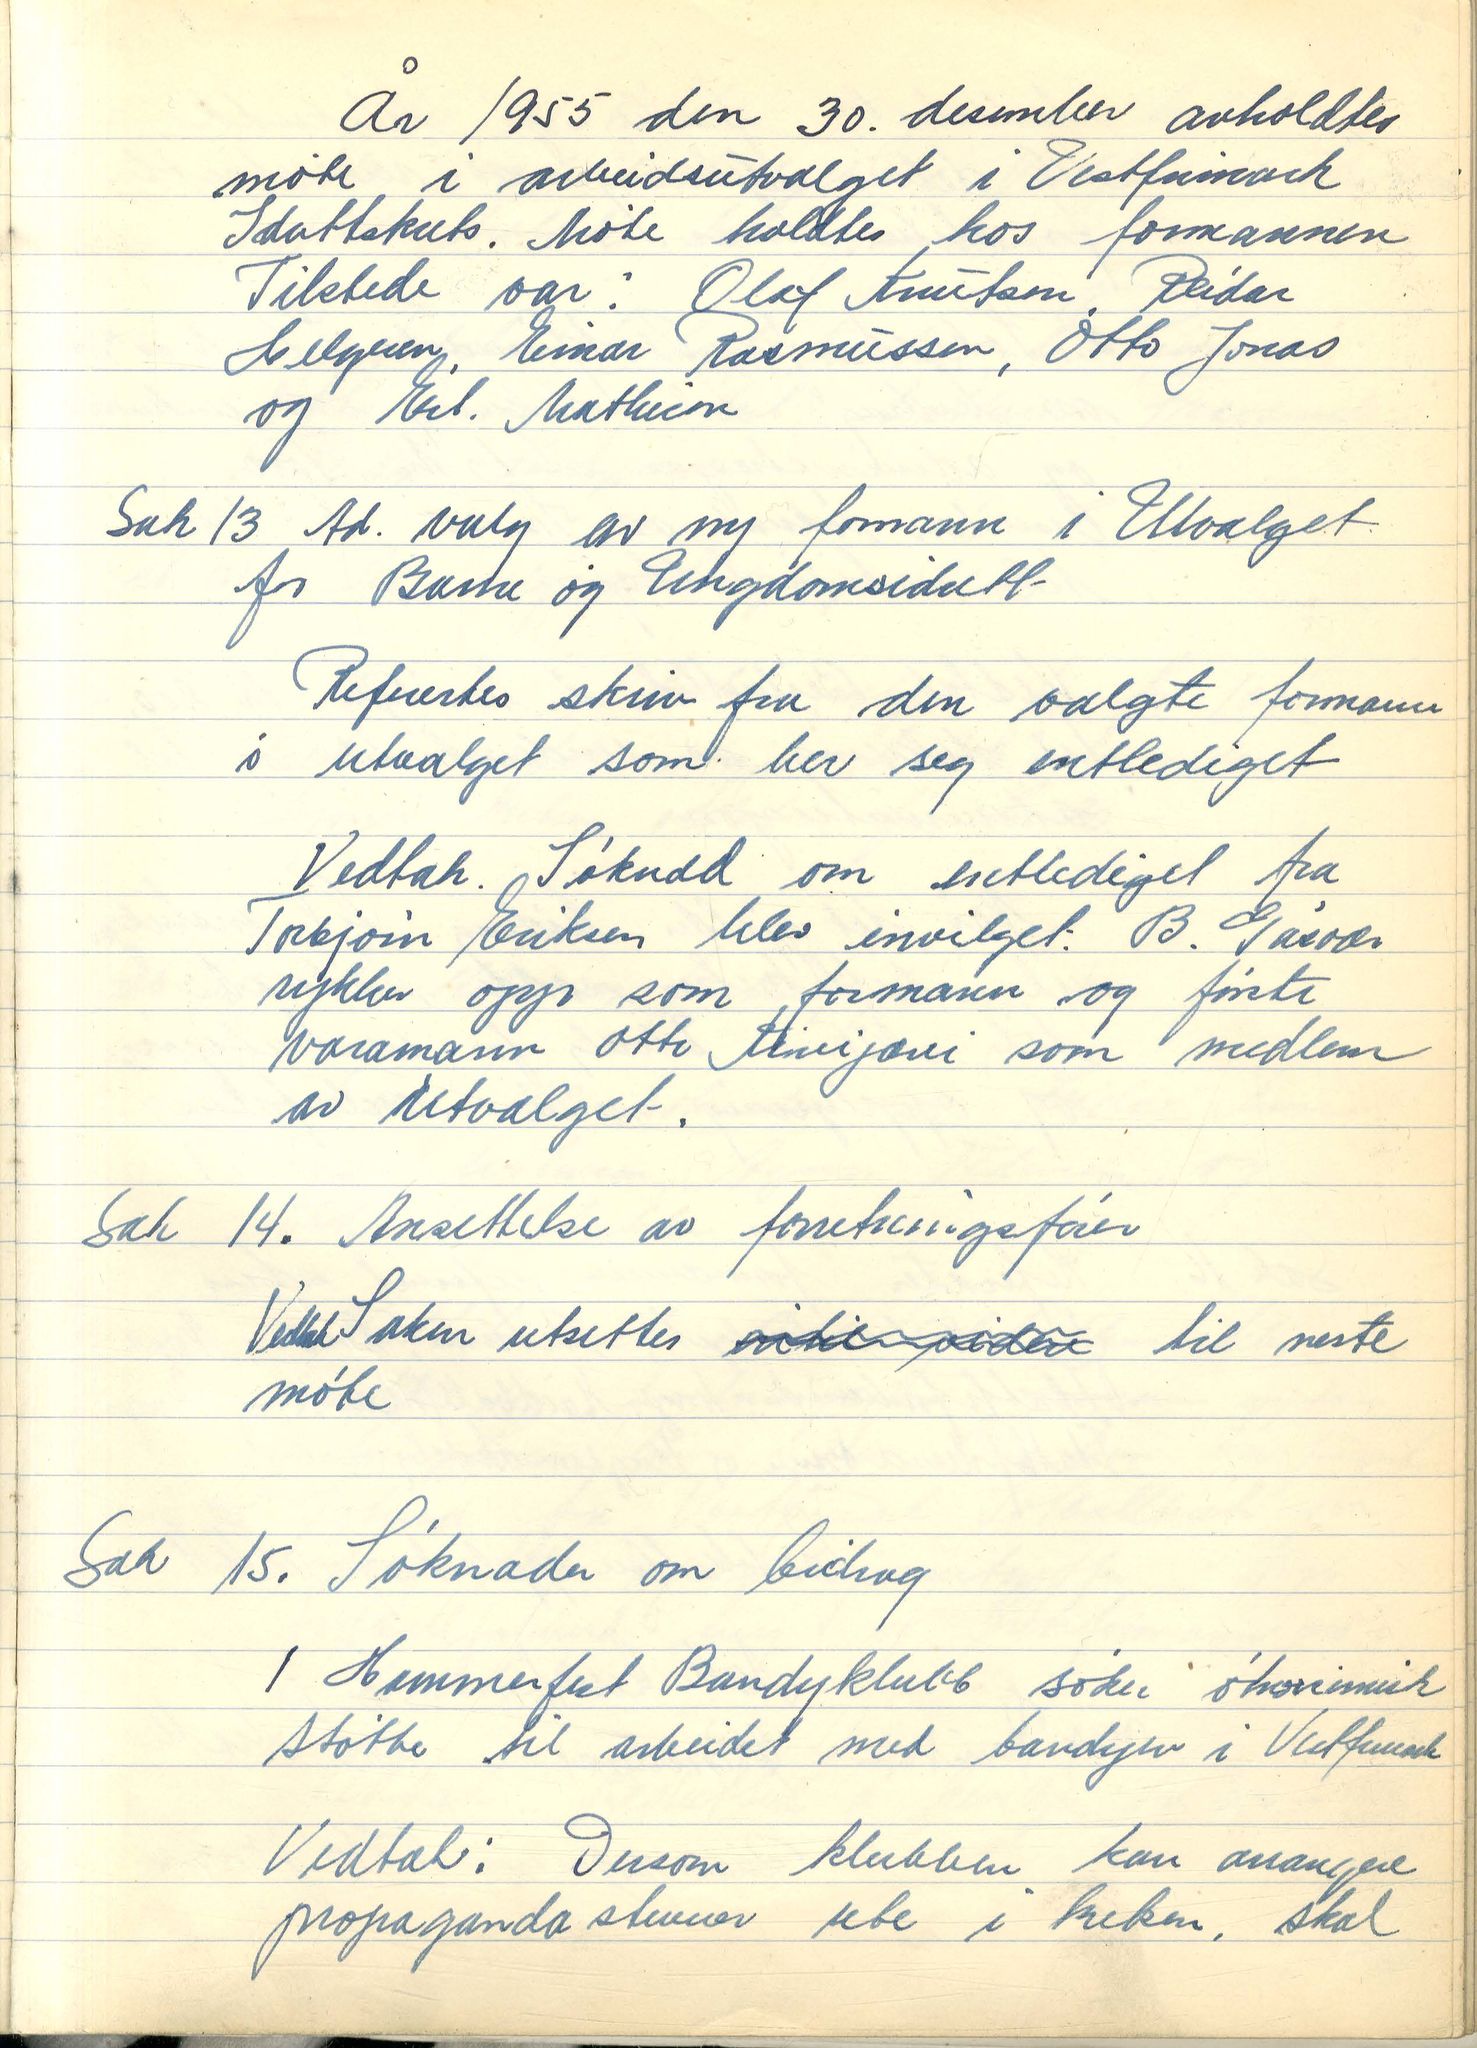 År 1955 den 30. desember avholdtes
møte i arbeidsutvalget i Vestfinmark
Idrettskrets. Møte holdtes hos formannen
Tilstede var: Olaf Knutsen, Reidar
Helgesen, Einar Rasmussen, Otto Jonas
og Erl. Mathisen
Sak 13 Ad. valg av ny formann i Utvalget
for Barne og Ungdomsidrett
Refuertes skriv fra den valgte formann
i utvalget som ber seg entlediget
Vedtak. Søknad om entlediget fra
Torbjørn Eriksen blev innvilget. B. Gåsvær
rykker opp som formann og første
varamann Otto Kivijærvi som medlem
av utvalget.
Sak 14. Ansettelse av forretningsfører
Vedtak Saken utsettes inntil videre til neste
møte
Sak 15. Søknader om bidrag
1 Hammerfest Bandyklubb søker økonomisk
støtte til arbeidet med bandyen i Vestfinmark
Vedtak: Dersom klubben kan arrangere
propaganda stevner ute i kretsen, skal